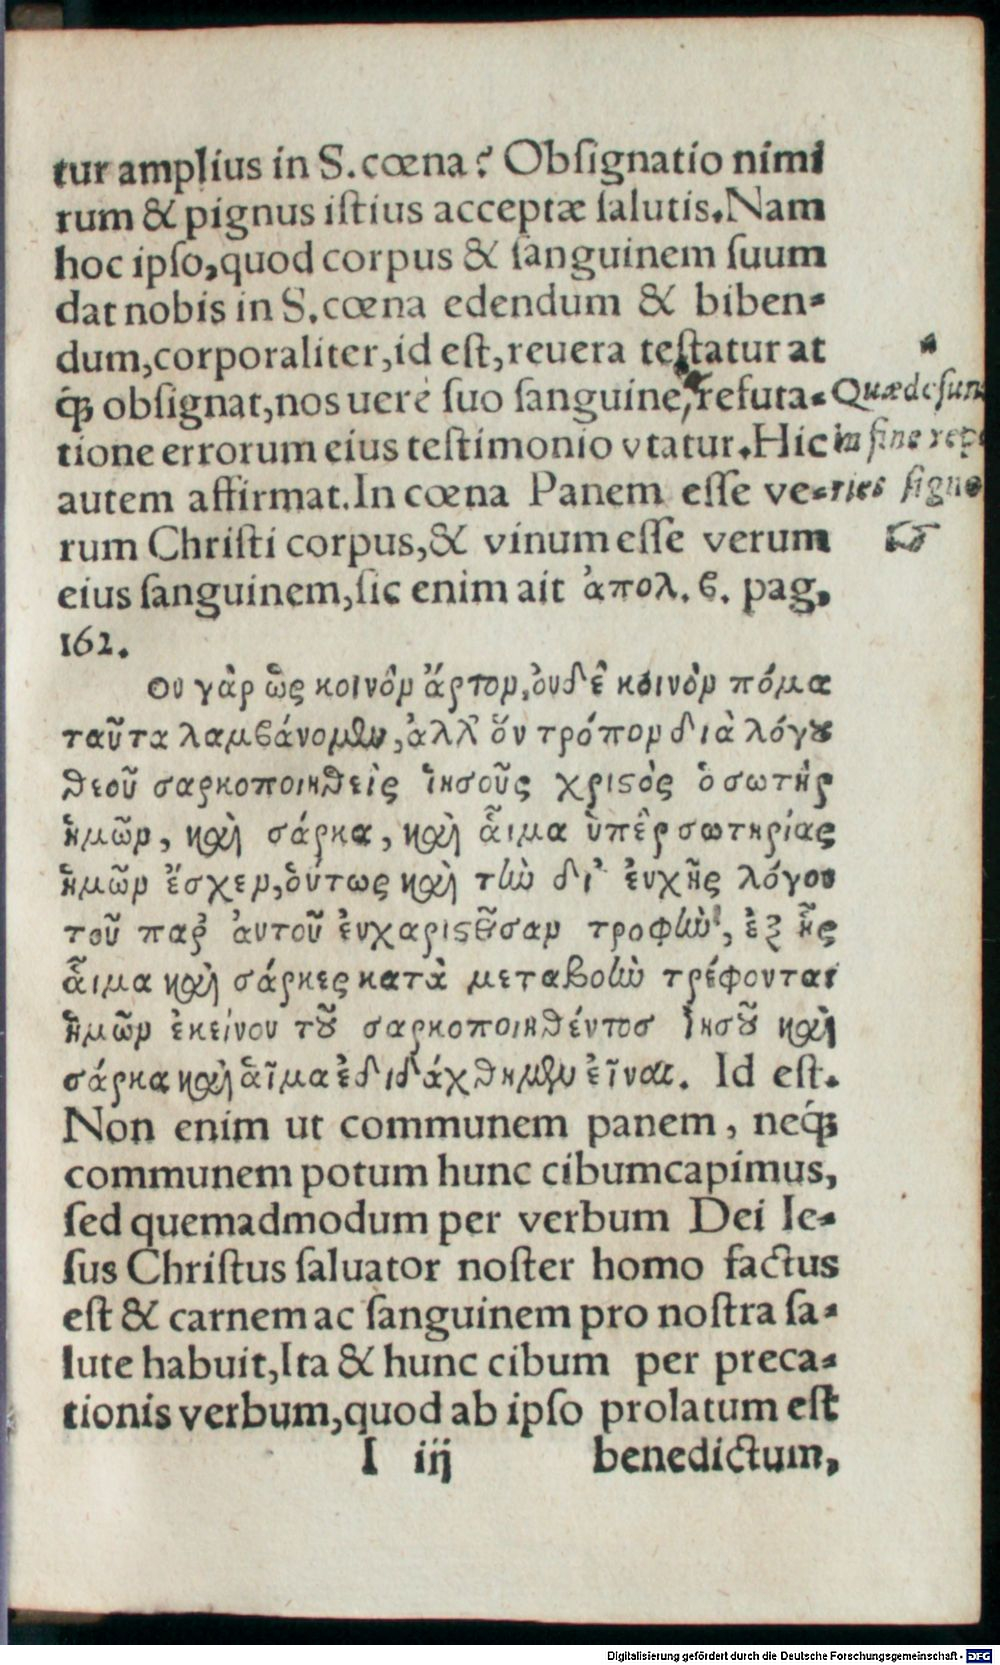 tur amplius in S. cœna? Obſignatio nimi
rum & pignus iſtius acceptæ ſalutis. Nam
hoc ipſo, quod corpus & ſanguinem ſuum
dat nobis in S. cœna edendum & biben-
dum, corporaliter, id eſt, reuera teſtatur at
q́ꝫ obſignat, nos uerè ſuo ſanguine, refuta-
Quæ deſunt
tione errorum eius teſtimonio vtatur. Hic
in fine
autem affirmat. In cœna Panem eſſe ve-
ries ſigno
rum Chriſti corpus, & vinum eſſe verum
☞
eius ſanguinem, ſic enim ait ἀπολ. ϐ. pag,
162.
Ου γὰρ ὡς κοινὸν ἄρτον, ὀυδὲ κοινὸν πόμα
ταῦτα λαμϐάνομεν, ἀλλ' ὅν τρόπον διὰ λόγȣ
θεοῦ σαρκοποιηθεὶς ἰησοῦς χριϛὸς ὁ σωτὴρ
ἡμῶν, καὶ σάρκα, καὶ ἇιμα ὑπὲρ σωτηρίας
ἡμῶν ἔσχεν, ὁύτως καὶ τὴν δι' ἐυχῆς λόγου
τοῦ παρ' ἀυτοῦ ἐυχαριϛηθεῖσαν τροφὴν, ἐξ ἧς
ἇιμα καὶ σάρκες κατὰ μεταβολὴν τρέφονται
ἡμῶν ἐκείνου τȣ͂ σαρκοποιηθέντοσ ἰησȣ͂ καὶ
σάρκα καὶ ἁῖμα ἐδιδάχθημεν ἐῖναι. Id eſt.
Non enim ut communem panem, neq́ꝫ
communem potum hunc cibum capimus,
ſed quemadmodum per verbum Dei Ie-
ſus Chriſtus ſaluator noſter homo factus
eſt & carnem ac ſanguinem pro noſtra ſa-
lute habuit, Ita & hunc cibum per preca-
tionis verbum, quod ab ipſo prolatum eſt
I iij benedictum,
Digitalisierung gefördert durch die Deutsche Forschungsgemeinschaft - DFG